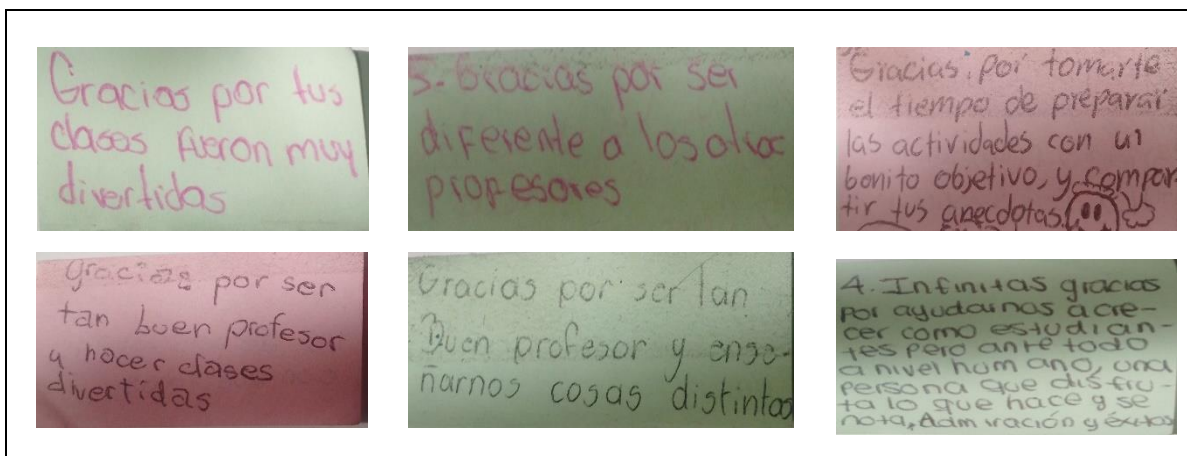 Gracias por tus
clases fueron muy
divertidas
5. Gracias por ser
diferente a los otros
profesores
Gracias, por tomarte
el tiempo de preparar
las actividades con un
bonito objetivo, y compar
tir tus anecdotas.
gracias por ser
tan buen profesor
y hacer clases
divertidas
Gracias por ser tan
Buen profesor y ense-
ñarnos cosas distintas
4. Infinitas gracias
por ayudarnos a cre-
cer como estudian-
tes pero ante todo
a nivel humano, una
persona que disfru-
ta lo que hace y se
nota, Admiración y éxitos